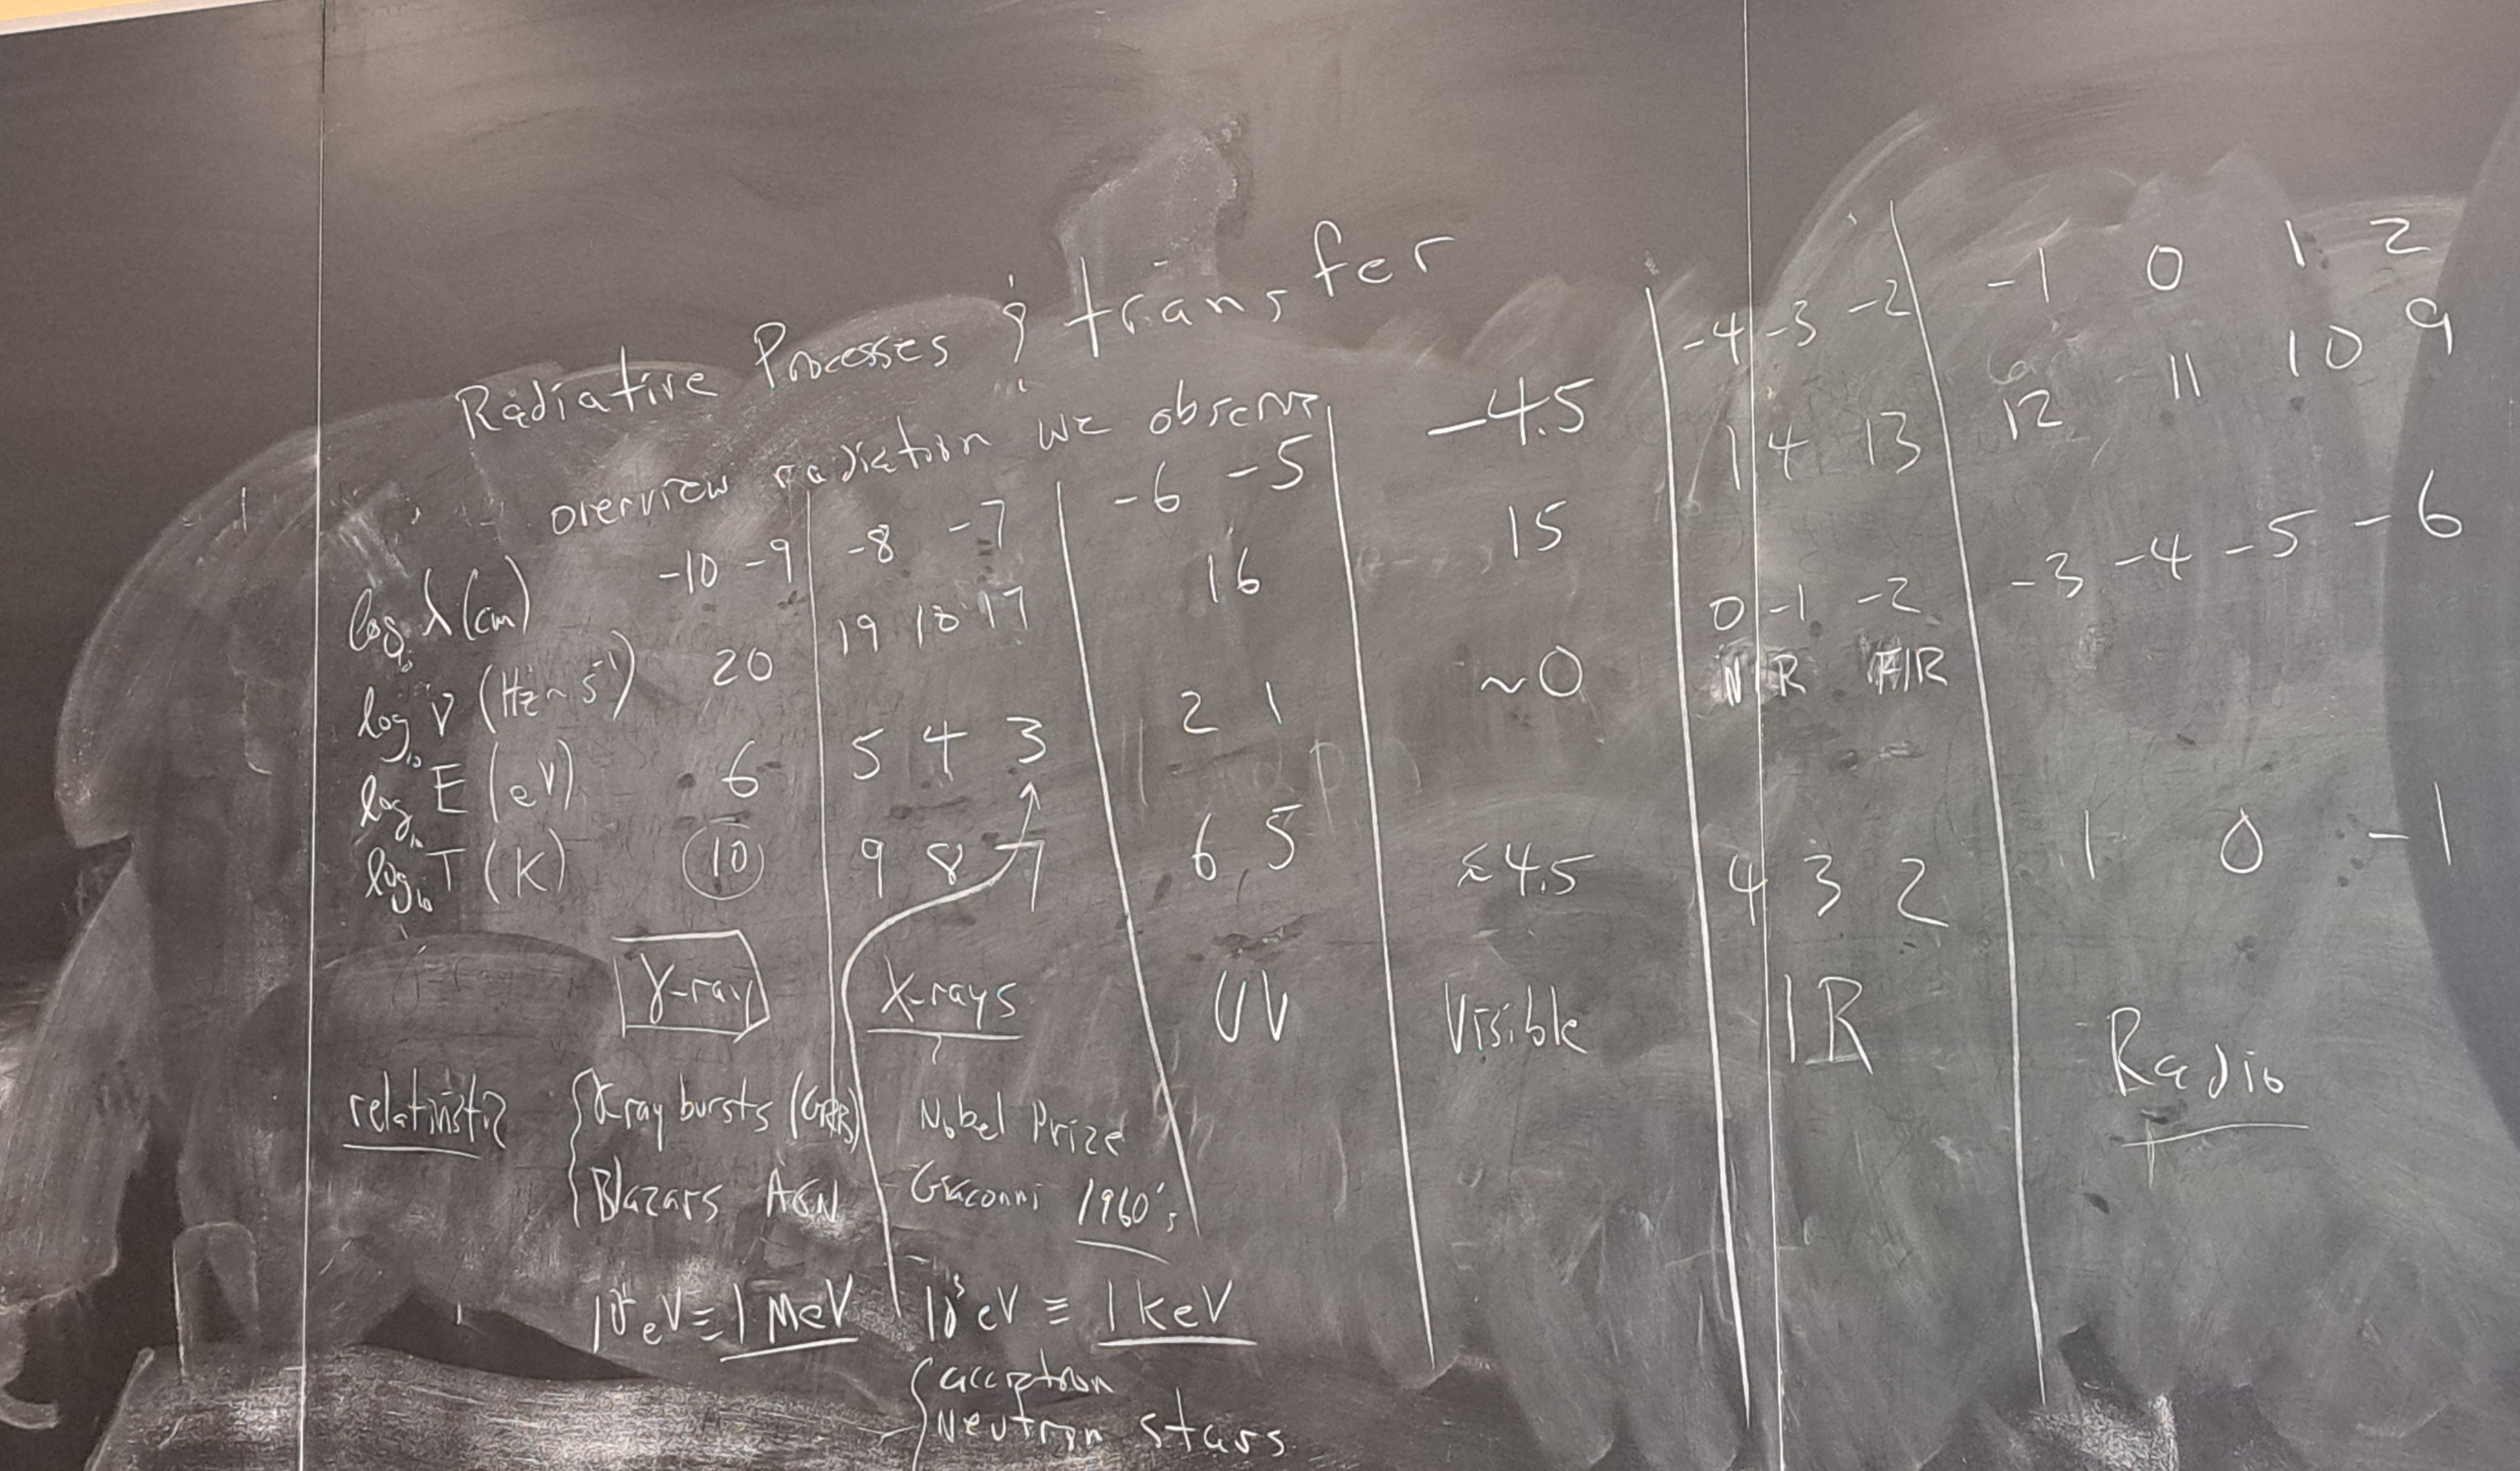 Radiative Processes & transfer
overview radiation we observe
log₁₀ λ (cm) -10 -9 | -8 -7 | -6 -5 | -4.5 | -4 -3 -2 | -1 0 1 2
log₁₀ ν (Hz ~ s⁻¹) 20 | 19 18 17 | 16 | 15 | 14 13 | 12 11 10 9
log₁₀ E (eV) 6 | 5 4 3 | 2 1 | ~0 | 0 -1 -2 | -3 -4 -5 -6
NIR FIR
log₁₀ T (K) 10 | 9 8 7 | 6 5 | ≈4.5 | 4 3 2 | 1 0 -1
γ-ray | X-rays | UV | Visible | IR | Radio
γ ray bursts (GRB) Nobel Prize
Blazars AGN Giaconni 1960's
10⁶ eV ≡ 1 MeV 10³ eV ≡ 1 keV
accretion
Neutron stars